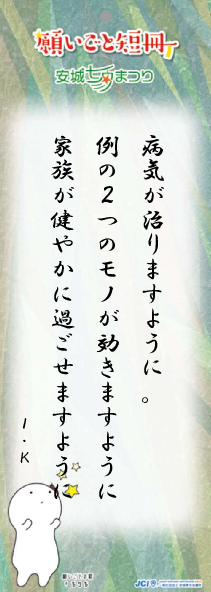 願いごと短冊
安城七夕まつり
病気が治りますように。
例の2つのモノが効きますように
家族が健やかに過ごせますように
I.K
JCI